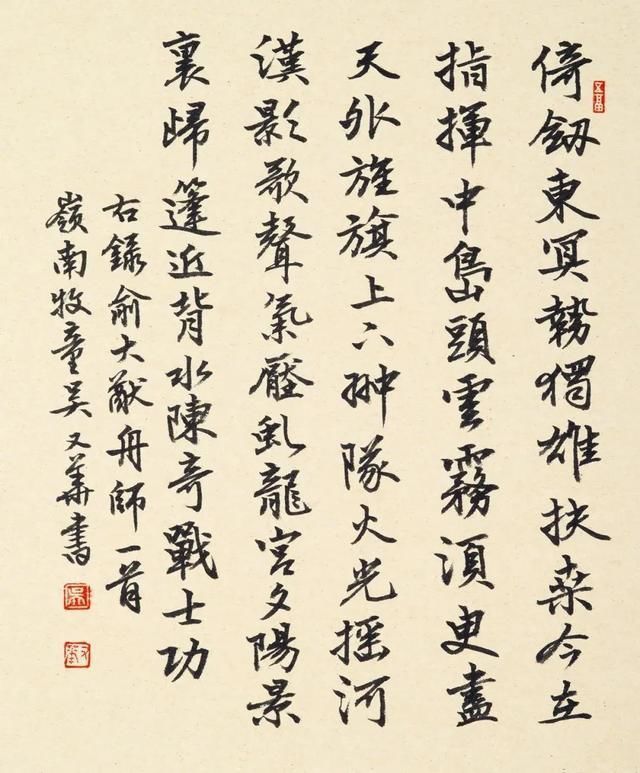 倚釼東冥勢獨雄扶桑今在
指揮中島頭雲霧須臾盡
天外旌旗上下翀隊火光摇河
漢影歌聲氣壓虬龍宮夕陽景
裏歸篷近背水陳奇戰士功
右録俞大猷舟師一首
嶺南牧童吴又華書